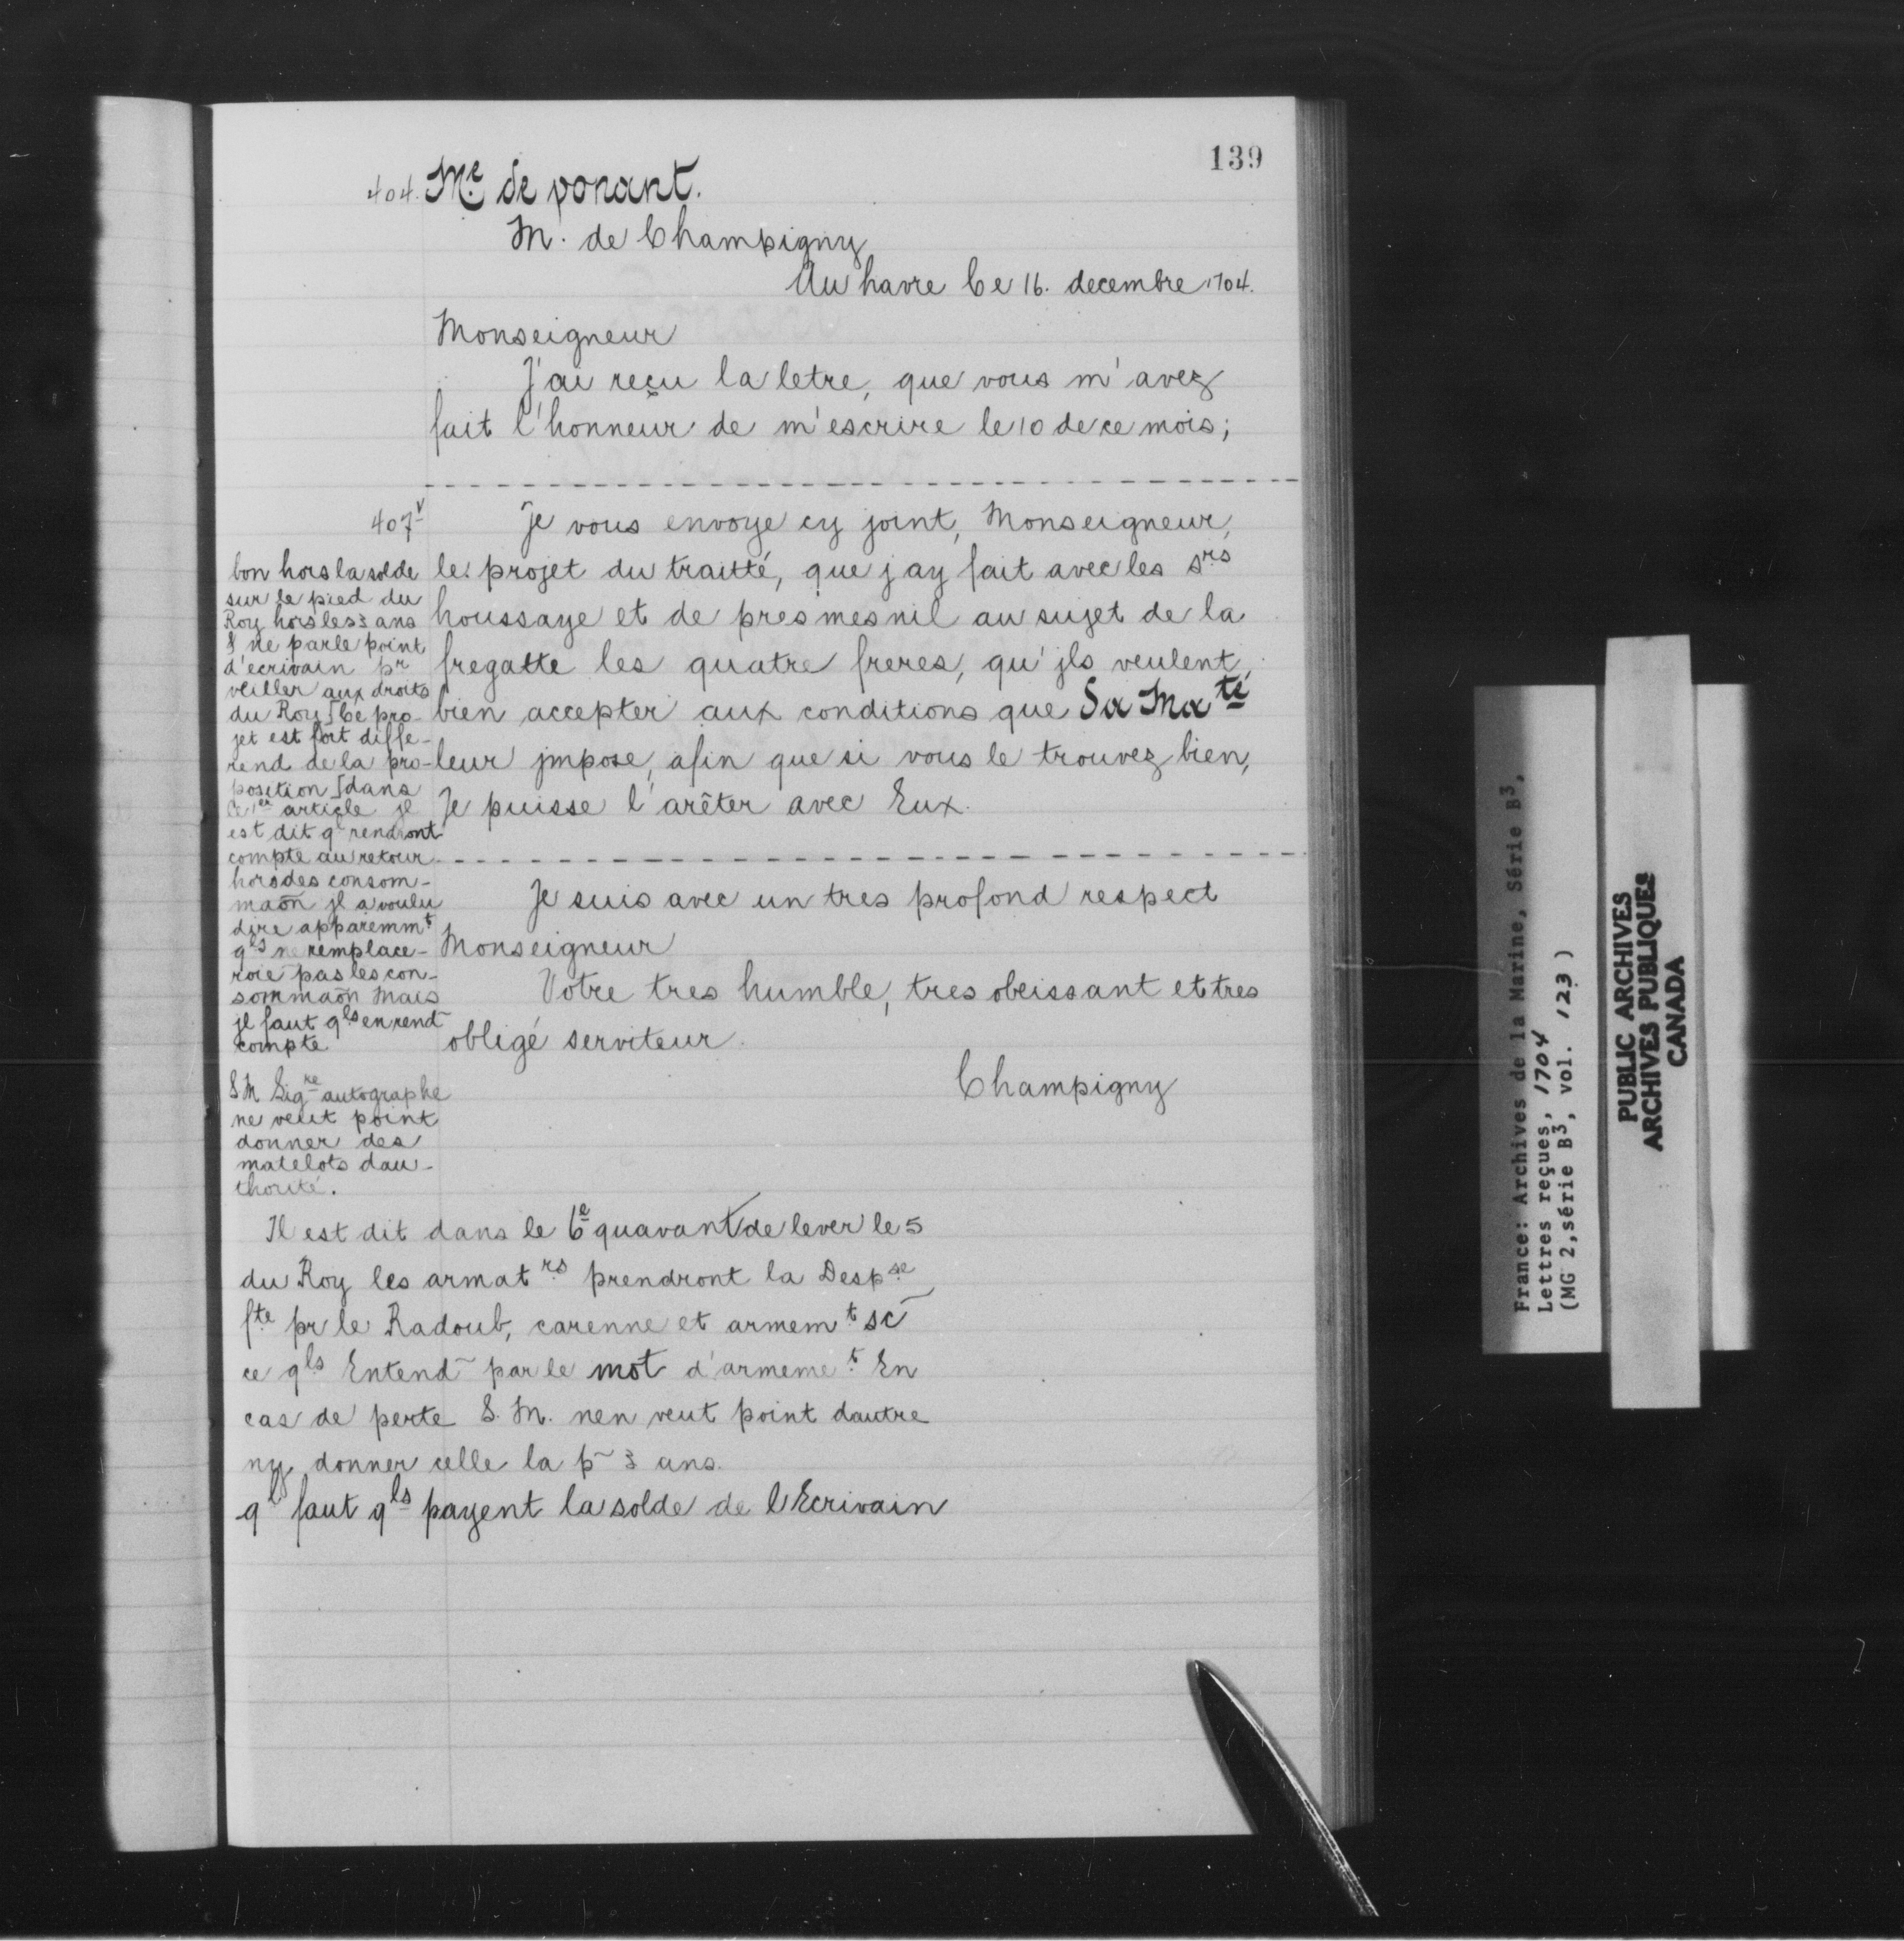 139
404. Me de ponant.
M. de Champigny
Au havre Ce 16. decembre 1704.
Monseigneur
J'ai reçu la letre, que vous m'avez
fait l'honneur de m'escrire le 10 de ce mois;
407v
Je vous envoye cy joint, Monseigneur,
le projet du traitté, que j ay fait avec les srs
houssaye et de presmesnil au sujet de la
fregatte les quatre freres, qu'jls veulent
bien accepter aux conditions que Sa Maté
leur jmpose, afin que si vous le trouvez bien,
Je puisse l'arêter avec Eux.
Je suis avec un tres profond respect
Monseigneur
Votre tres humble, tres obeissant et tres
obligé serviteur.
Champigny
bon hors la solde
sur le pied du
Roy hors les 3 ans
& ne parle point
d'ecrivain pr
veiller aux droits
du Roy [Ce pro-
jet est fort diffe-
rend de la pro-
position [dans
Ce 1er article jl
est dit ql rendront
compte au retour
hors des consom-
maõn jl a voulu
dire apparemmt
qls ne remplace-
roie pas les con-
sommaõn Mais
jl faut qls en rend
compte
S M Sigre autographe
ne veut point
donner des
matelots dau-
thorité.
Il est dit dans le 6e quavant de lever le 5
du Roy les armatrs prendront la Despse
fte pr le Radoub, carenne et armemt sc̃
ce qls Entend̃ par le mot d'armemet En
cas de perte S. M. nen veut point dautre
ny donner celle la p̃ 3 ans.
ql faut qls payent la solde de l Ecrivain
France: Archives de la Marine, Série B3,
Lettres reçues, 1704
(MG 2, série B3, vol. 123)
PUBLIC ARCHIVES
ARCHIVES PUBLIQUES
CANADA